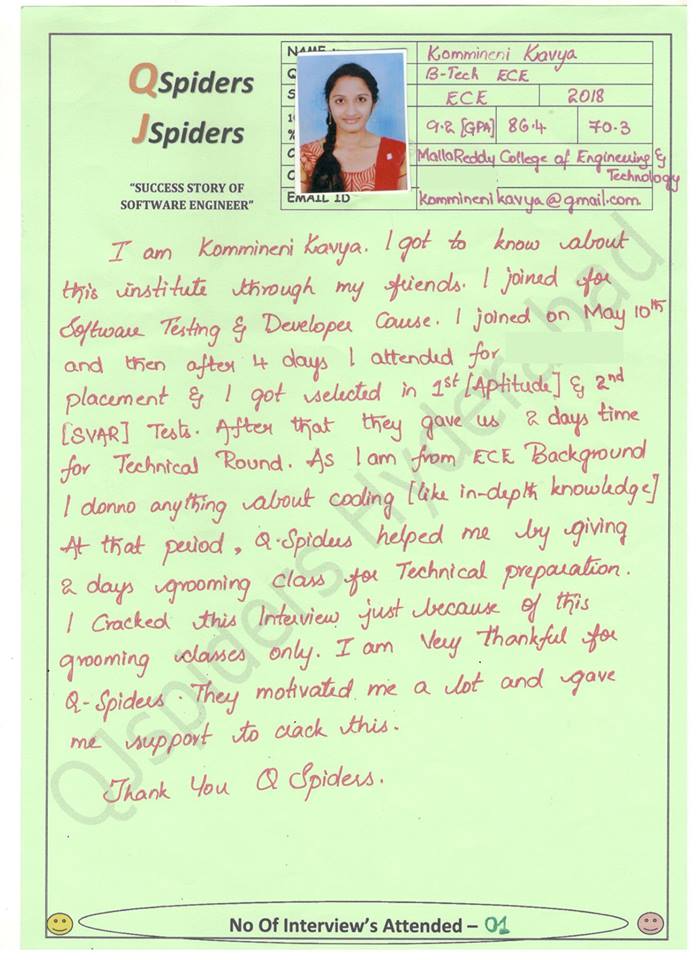 QSpiders
JSpiders
"SUCCESS STORY OF
SOFTWARE ENGINEER"
NAME Kommineni Kavya
Q B-Tech ECE
S ECE 2018
% 9.2 [GPA] 86.4 70.3
C MallaReddy College of Engineering &
C Technology
EMAIL ID kommineni kavya@gmail.com
I am Kommineni Kavya. I got to know about
this institute through my friends. I joined for
Software Testing & Developer Cause. I joined on May 10th
and then after 4 days I attended for
placement & I got selected in 1st [Aptitude] & 2nd
[SVAR] Tests. After that they gave us 2 days time
for Technical Round. As I am from ECE Background
I donno anything about coding [like in-depth knowledge]
At that period, Q-Spiders helped me by giving
2 days grooming class for Technical preparation.
I Cracked this Interview just because of this
grooming classes only. I am Very thankful for
Q-Spiders. They motivated me a lot and gave
me support to crack this.
Thank You Q Spiders.
QJspiders Hyderabad
No Of Interview's Attended – 01